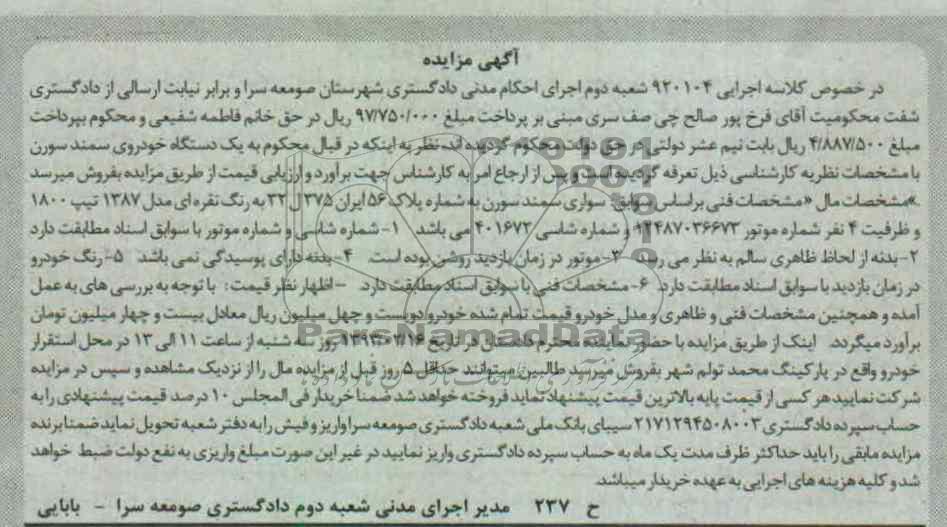 آگهی مزایده
در خصوص کلاسه اجرایی ۹۲۰۱۰۴ شعبه دوم اجرای احکام مدنی دادگستری شهرستان صومعه سرا و برابر نیابت ارسالی از دادگستری
شفت محکومیت آقای فرخ پور صالح چی صف سری مبنی بر پرداخت مبلغ ۹۷/۷۵۰/۰۰۰ ریال در حق خانم فاطمه شفیعی و محکوم بپرداخت
مبلغ ۴/۸۸۷/۵۰۰ ریال بابت نیم عشر دولتی در حق دولت محکوم گردیده اند، نظر به اینکه در قبال محکوم به یک دستگاه خودروی سمند سورن
با مشخصات نظریه کارشناسی ذیل تعرفه گردیده است و پس از ارجاع امر به کارشناس جهت برآورد و ارزیابی قیمت از طریق مزایده بفروش میرسد
»مشخصات مال «مشخصات فنی براساس سوابق: سواری سمند سورن به شماره پلاک ۵۶ ایران ۳۷۵ ل ۳۲ به رنگ نقره ای مدل ۱۳۸۷ تیپ ۱۸۰۰
و ظرفیت ۴ نفر شماره موتور ۱۲۴۸۷۰۳۶۶۷۳ و شماره شاسی ۴۰۱۶۷۳ می باشد ۱- شماره شاسی و شماره موتور با سوابق اسناد مطابقت دارد
۲- بدنه از لحاظ ظاهری سالم به نظر می رسد ۳- موتور در زمان بازدید روشن بوده است. ۴- بدنه دارای پوسیدگی نمی باشد ۵- رنگ خودرو
در زمان بازدید با سوابق اسناد مطابقت دارد. ۶- مشخصات فنی با سوابق اسناد مطابقت دارد. -اظهار نظر قیمت: با توجه به بررسی های به عمل
آمده و همچنین مشخصات فنی و ظاهری و مدل خودرو قیمت تمام شده خودرو دویست و چهل میلیون ریال معادل بیست و چهار میلیون تومان
برآورد میگردد. اینک از طریق مزایده با حضور نماینده محترم دادستان در تاریخ ۱۳۹۳/۰۲/۱۶ روز سه شنبه از ساعت ۱۱ الی ۱۳ در محل استقرار
خودرو واقع در پارکینگ محمد تولم شهر بفروش میرسد طالبین میتوانند حداقل ۵ روز قبل از مزایده مال را از نزدیک مشاهده و سپس در مزایده
شرکت نمایید هر کسی از قیمت پایه بالاترین قیمت پیشنهاد نماید فروخته خواهد شد ضمنا خریدار فی المجلس ۱۰ درصد قیمت پیشنهادی را به
حساب سپرده دادگستری ۲۱۷۱۲۹۴۵۰۸۰۰۳ سیبای بانک ملی شعبه دادگستری صومعه سرا واریز و فیش را به دفتر شعبه تحویل نماید ضمنا برنده
مزایده مابقی را باید حداکثر ظرف مدت یک ماه به حساب سپرده دادگستری واریز نمایید در غیر این صورت مبلغ واریزی به نفع دولت ضبط خواهد
شد و کلیه هزینه های اجرایی به عهده خریدار میباشد.
ح ۲۳۷ مدیر اجرای مدنی شعبه دوم دادگستری صومعه سرا - بابایی
ParsNamadData